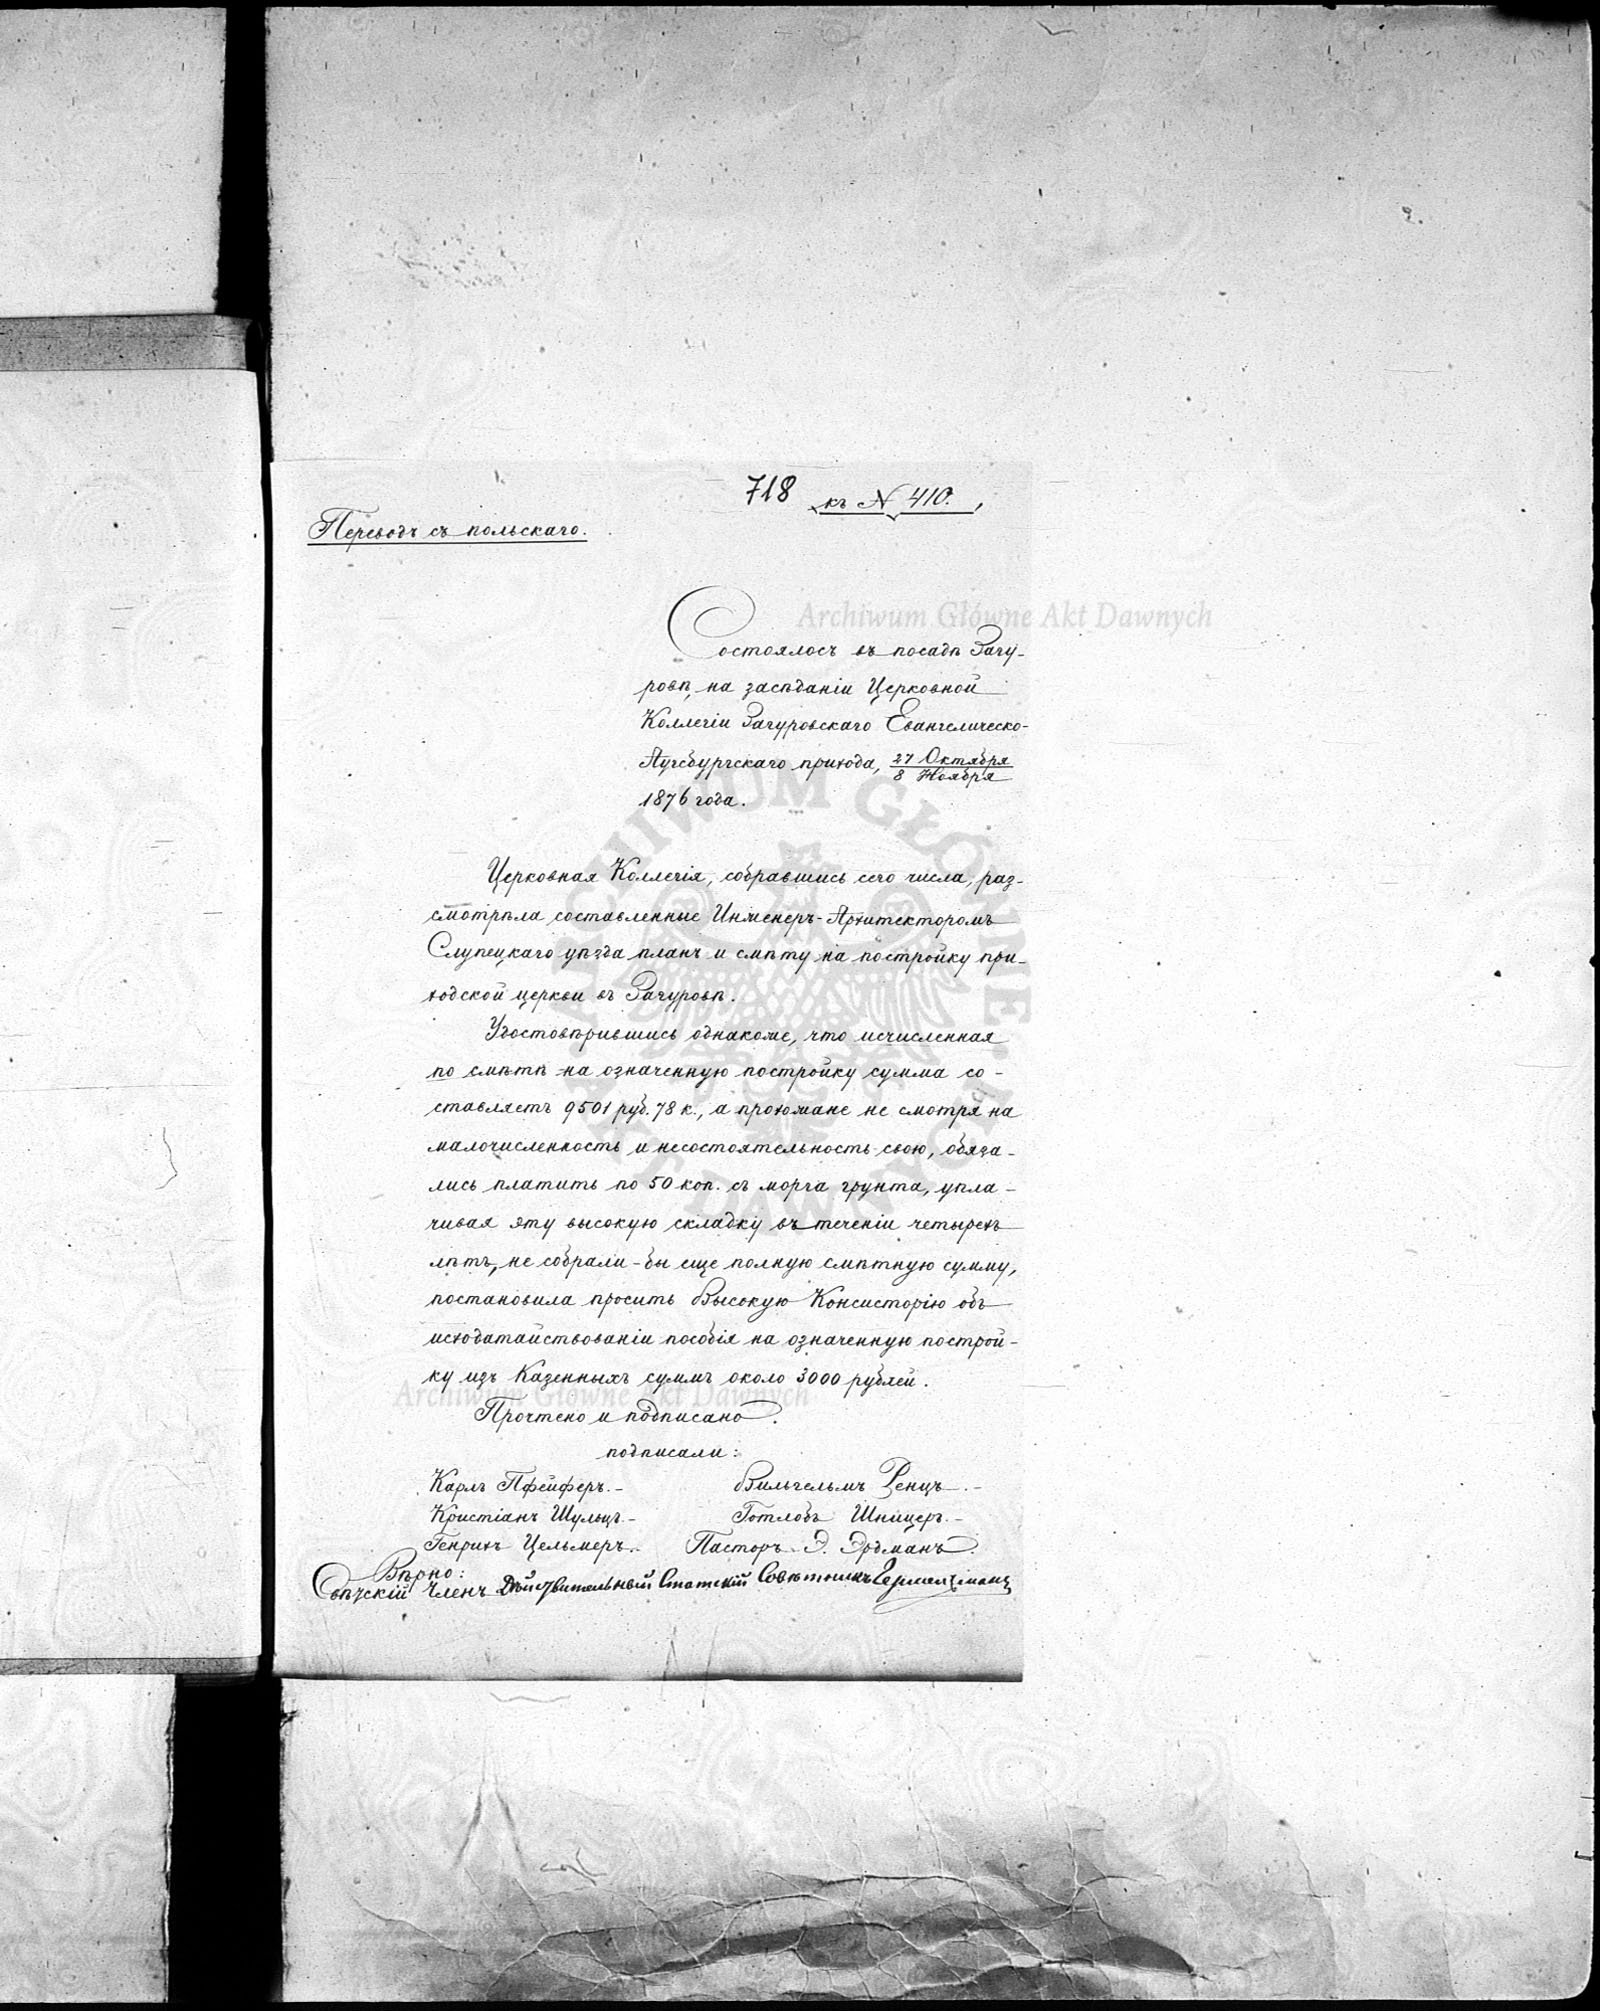 718 къ № 410.
Переводъ съ польскаго.
Archiwum Główne Akt Dawnych
Состоялось въ посадѣ Загу-
ровѣ, на засѣданіи Церковной
Коллегіи Загуровскаго Евангелическо-
Аугсбургскаго прихода, 27 Октября
8 Ноября
1876 года.
Церковная Коллегія, собравшись сего числа, раз-
смотрѣла составленные Инженеръ-Архитекторомъ
Слупецкаго уѣзда планъ и смѣту на постройку при-
ходской церкви въ Загуровѣ.
Удостовѣрившись однакоже, что исчисленная
по смѣтѣ на означенную постройку сумма со-
ставляетъ 9501 руб. 78 к., а прохожане не смотря на
малочисленность и несостоятельность свою, обяза-
лись платить по 50 коп. съ морга грунта, упла-
чивая эту высокую складку въ теченіи четырехъ
лѣтъ, не собрали-бы еще полную смѣтную сумму,
постановила просить Высокую Консисторію объ
исходатайствованіи пособія на означенную построй-
ку изъ Казенныхъ суммъ около 3000 рублей.
Archiwum Główne Akt Dawnych
Прочтено и подписано.
подписали:
Карлъ Пфейферъ.- Вильгельмъ Ренцъ.-
Кристіанъ Шульцъ.- Готлобъ Шницеръ.-
Генрихъ Цельмеръ.. Пасторъ Э. Эрдманъ.
Вѣрно:
Свѣтскій Членъ Дѣйствительный Статскій Совѣтникъ
ARCHIWUM GŁÓWNE AKT DAWNYCH